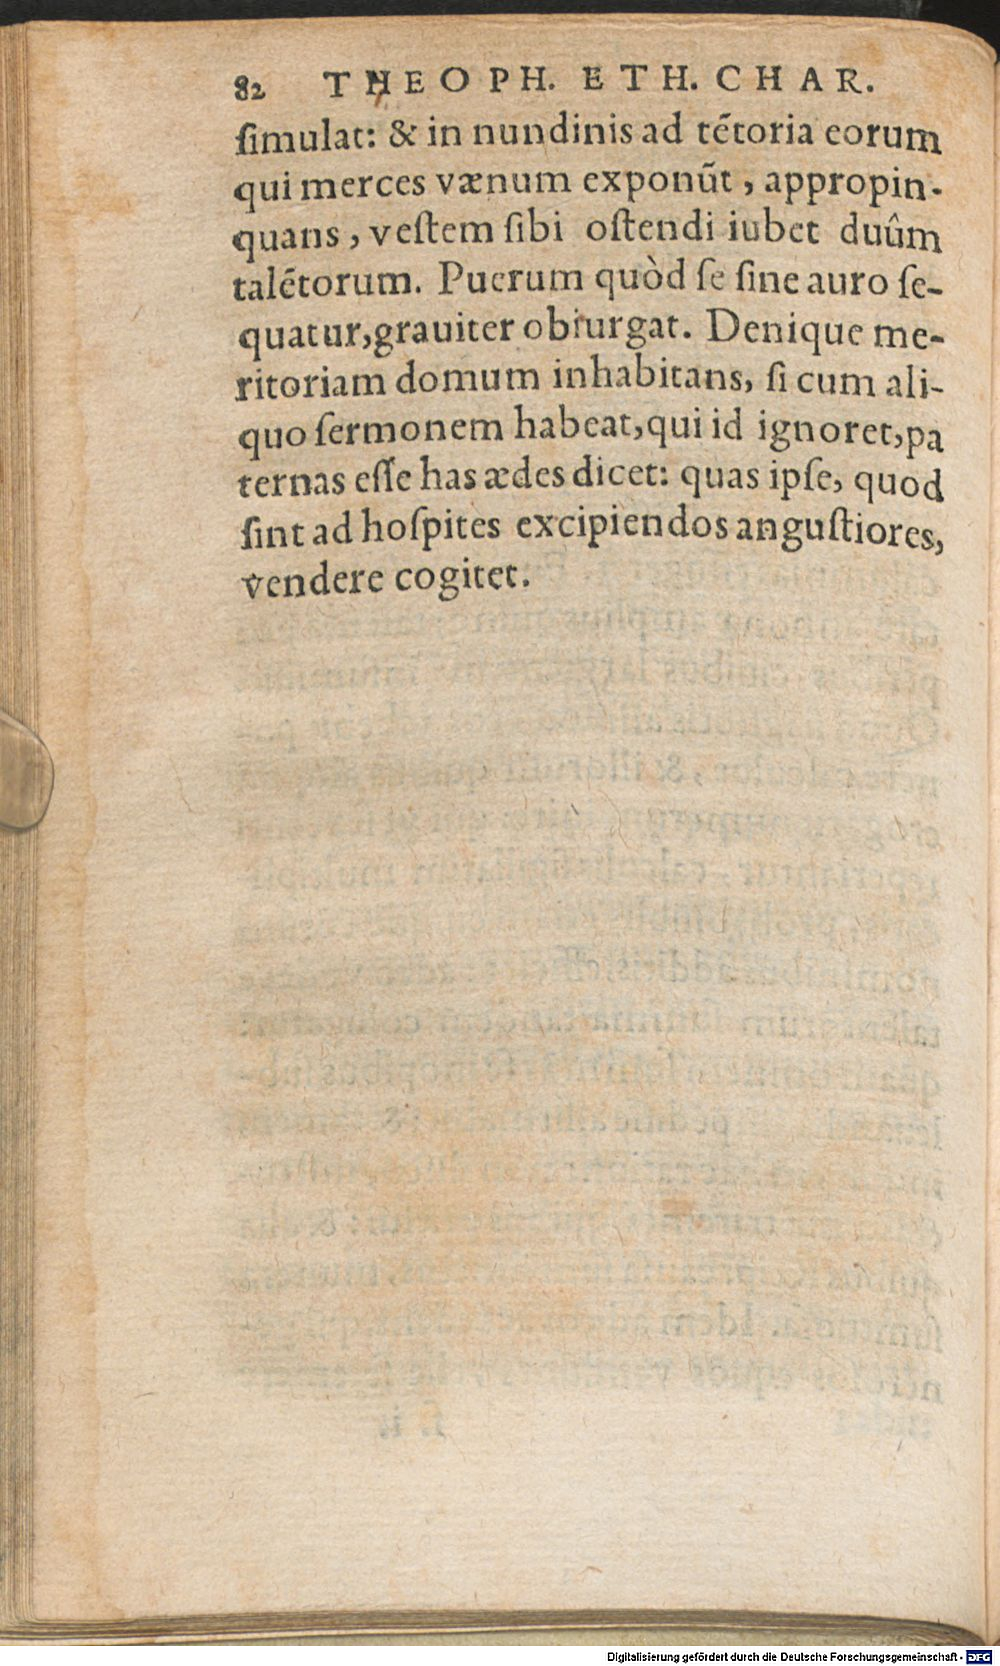 82 THEOPH. ETH. CHAR.
ſimulat: & in nundinis ad tētoria eorum
qui merces vænum exponūt, appropin-
quans, veſtem ſibi oſtendi iubet duûm
talētorum. Puerum quòd ſe ſine auro ſe-
quatur, grauiter obiurgat. Denique me-
ritoriam domum inhabitans, ſi cum ali-
quo ſermonem habeat, qui id ignoret, pa
ternas eſſe has ædes dicet: quas ipſe, quod
ſint ad hoſpites excipiendos anguſtiores,
vendere cogitet.
Digitalisierung gefördert durch die Deutsche Forschungsgemeinschaft - DFG